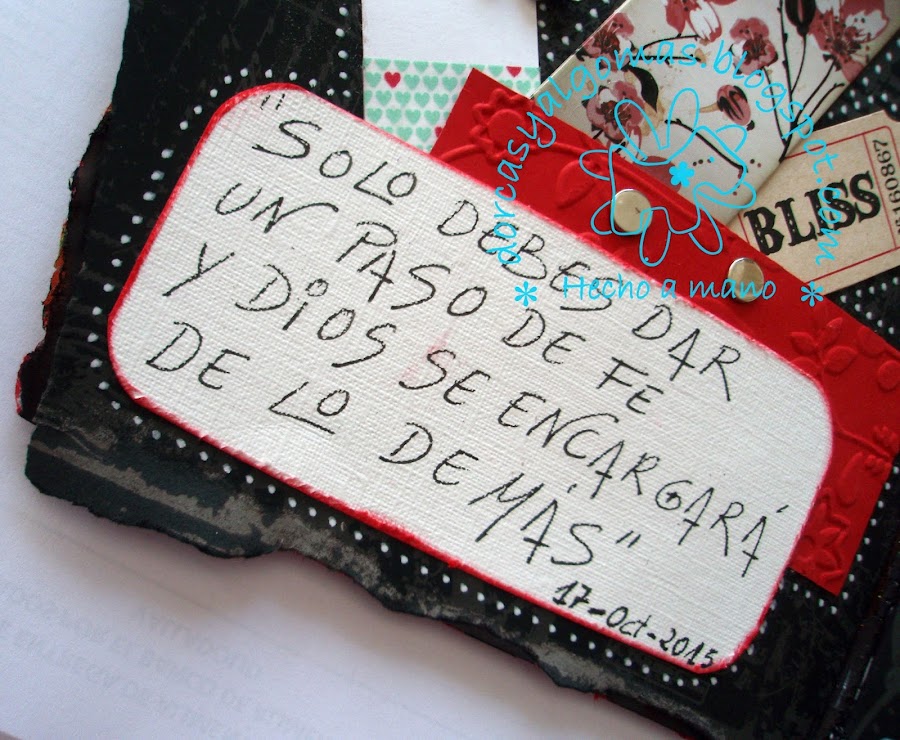 "SOLO DEBES DAR
UN PASO DE FE
Y DIOS SE ENCARGARÁ
DE LO DEMÁS"
17-Oct-2015
BLISS
160867
dorcasyalgomas.blogspot.com
* Hecho a mano *